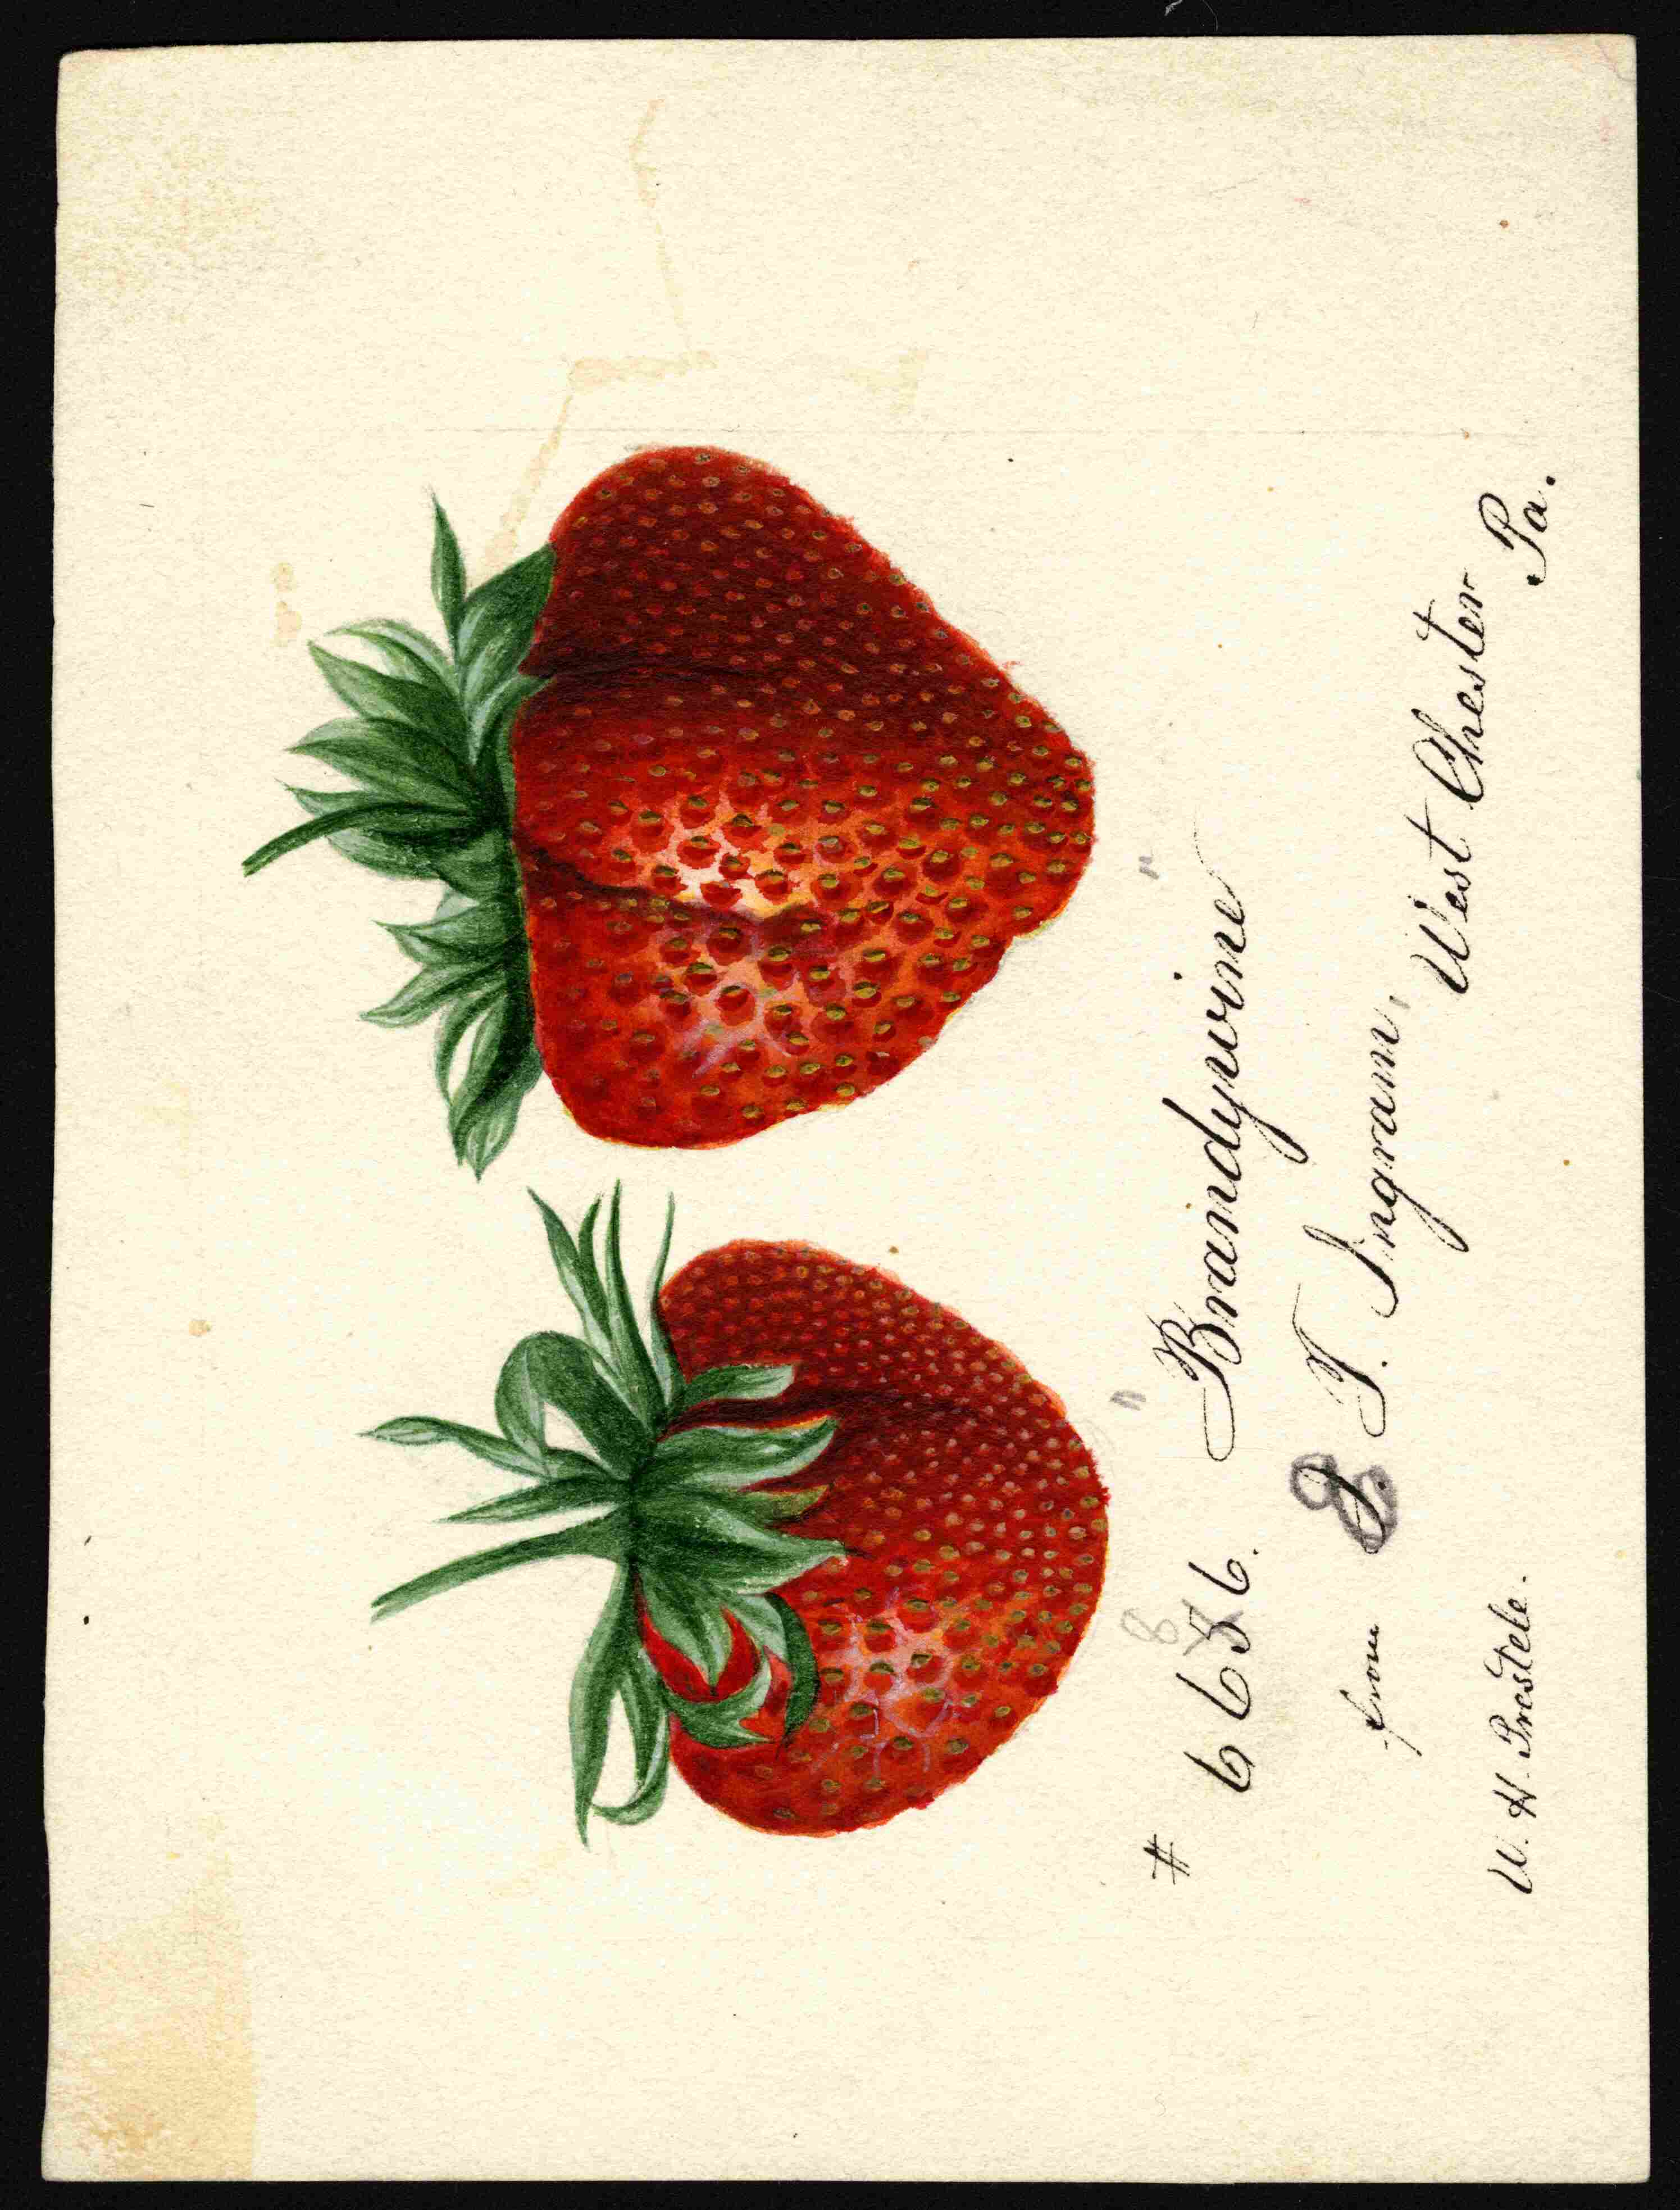 8
# 6636. "Brandywine"
from T. Ingram, West Chester
Pa.
W. H. Prestele.